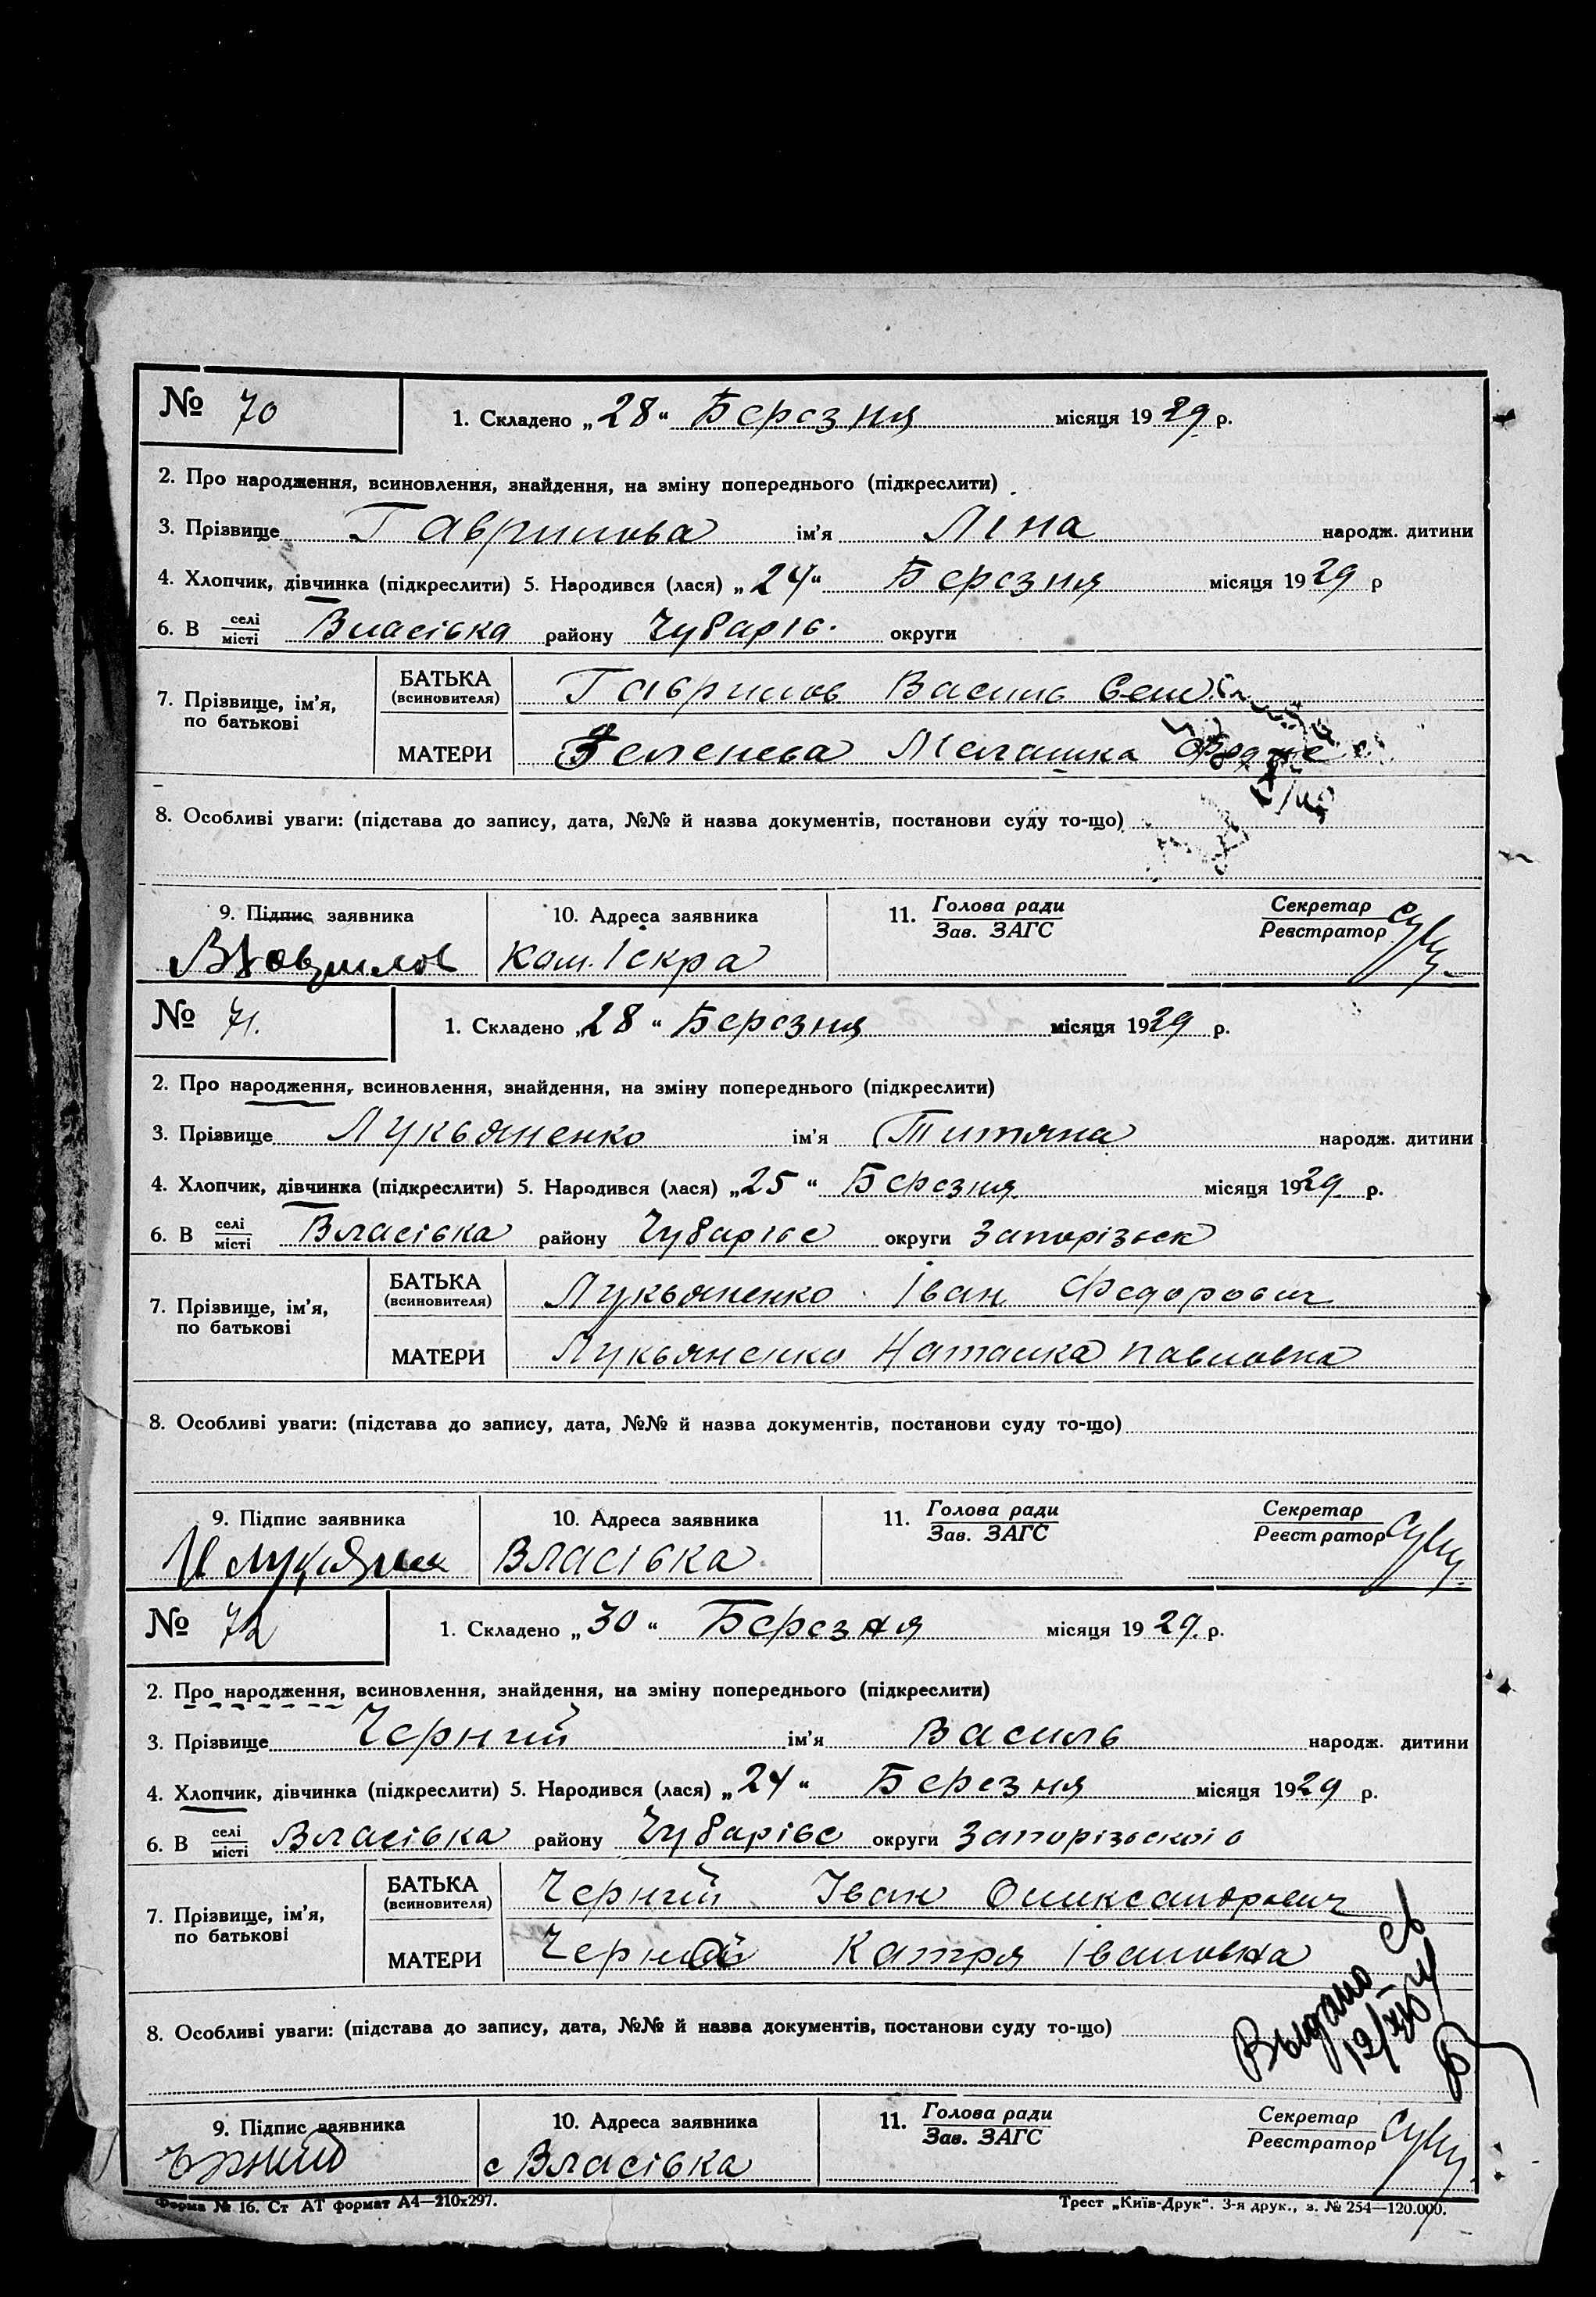 № 70 1. Складено „28“ Березня місяця 1929 р.
2. Про народження, всиновлення, знайдення, на зміну попереднього (підкреслити)
3. Прізвище Гаврилова ім'я Ліна народж. дитини
4. Хлопчик, дівчинка (підкреслити) 5. Народився (лася) „24“ Березня місяця 1929 р
6. В селі/місті Власівка району Чубарів. округи
7. Прізвище, ім'я, по батькові
БАТЬКА (всиновителя) Гаврилов Василь
МАТЕРИ Зеленева Мелашка
8. Особливі уваги: (підстава до запису, дата, №№ й назва документів, постанови суду то-що)
9. Підпис заявника 10. Адреса заявника 11. Голова ради/Зав. ЗАГС Секретар/Реєстратор
Ком. Іскра
№ 71. 1. Складено „28“ Березня місяця 1929 р.
2. Про народження, всиновлення, знайдення, на зміну попереднього (підкреслити)
3. Прізвище Лукьяненко ім'я Титяна народж. дитини
4. Хлопчик, дівчинка (підкреслити) 5. Народився (лася) „25“ Березня місяця 1929 р.
6. В селі/місті Власівка району Чубарівс округи Запорізьск
7. Прізвище, ім'я, по батькові
БАТЬКА (всиновителя) Лукьяненко Іван Федорович
МАТЕРИ Лукьяненко Наталка Павловна
8. Особливі уваги: (підстава до запису, дата, №№ й назва документів, постанови суду то-що)
9. Підпис заявника 10. Адреса заявника 11. Голова ради/Зав. ЗАГС Секретар/Реєстратор
Власівка
№ 72 1. Складено „30“ Березня місяця 1929 р.
2. Про народження, всиновлення, знайдення, на зміну попереднього (підкреслити)
3. Прізвище Черний ім'я Василь народж. дитини
4. Хлопчик, дівчинка (підкреслити) 5. Народився (лася) „24“ Березня місяця 1929 р.
6. В селі/місті Власівка району Чубарівс округи Запорізьского
7. Прізвище, ім'я, по батькові
БАТЬКА (всиновителя) Черний Іван Олиександрович
МАТЕРИ Черной Катря Івановна
8. Особливі уваги: (підстава до запису, дата, №№ й назва документів, постанови суду то-що)
Выдано св
9. Підпис заявника 10. Адреса заявника 11. Голова ради/Зав. ЗАГС Секретар/Реєстратор
с Власівка
Форма № 16. Ст АТ формат А4—210х297. Трест „Київ-Друк“. 3-я друк., з. № 254—120.000.